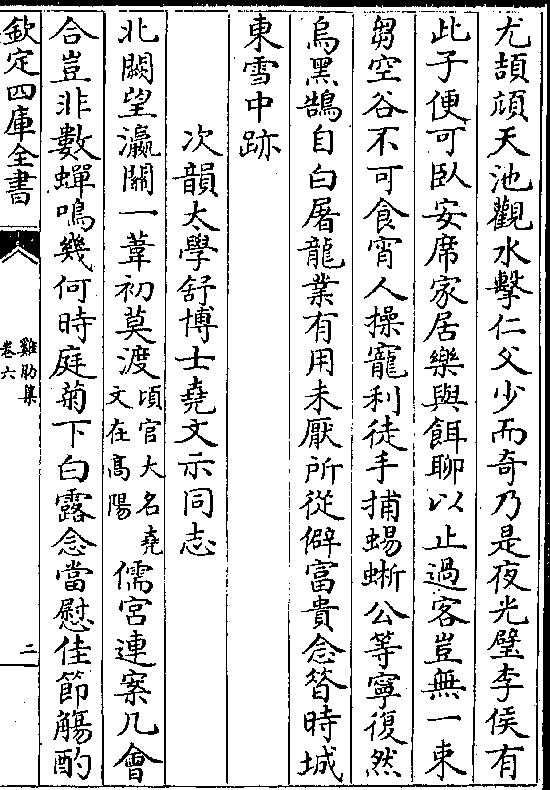 尤頡頏天池觀水擊仁父少而奇乃是夜光璧李侯有
此子便可臥安席家居樂與餌聊以止過客豈無一束
芻空谷不可食宵人操寵利徒手捕蜴蜥公等寧復然
烏黑鵠自白屠龍業有用未厭所從僻富貴念昝時城
東雪中跡
次韻太學舒博士堯文示同志
北闕望瀛關一葦初莫渡頃官大名堯文在高陽儒宮連案几會
合豈非數蟬鳴幾何時庭菊下白露念當慰佳節觴酌
欽定四庫全書
雞肋集
卷六
二